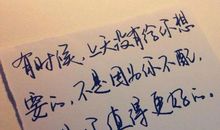 有时候，上天没有给你想
要的，不是因为你不配，
值得更好的。